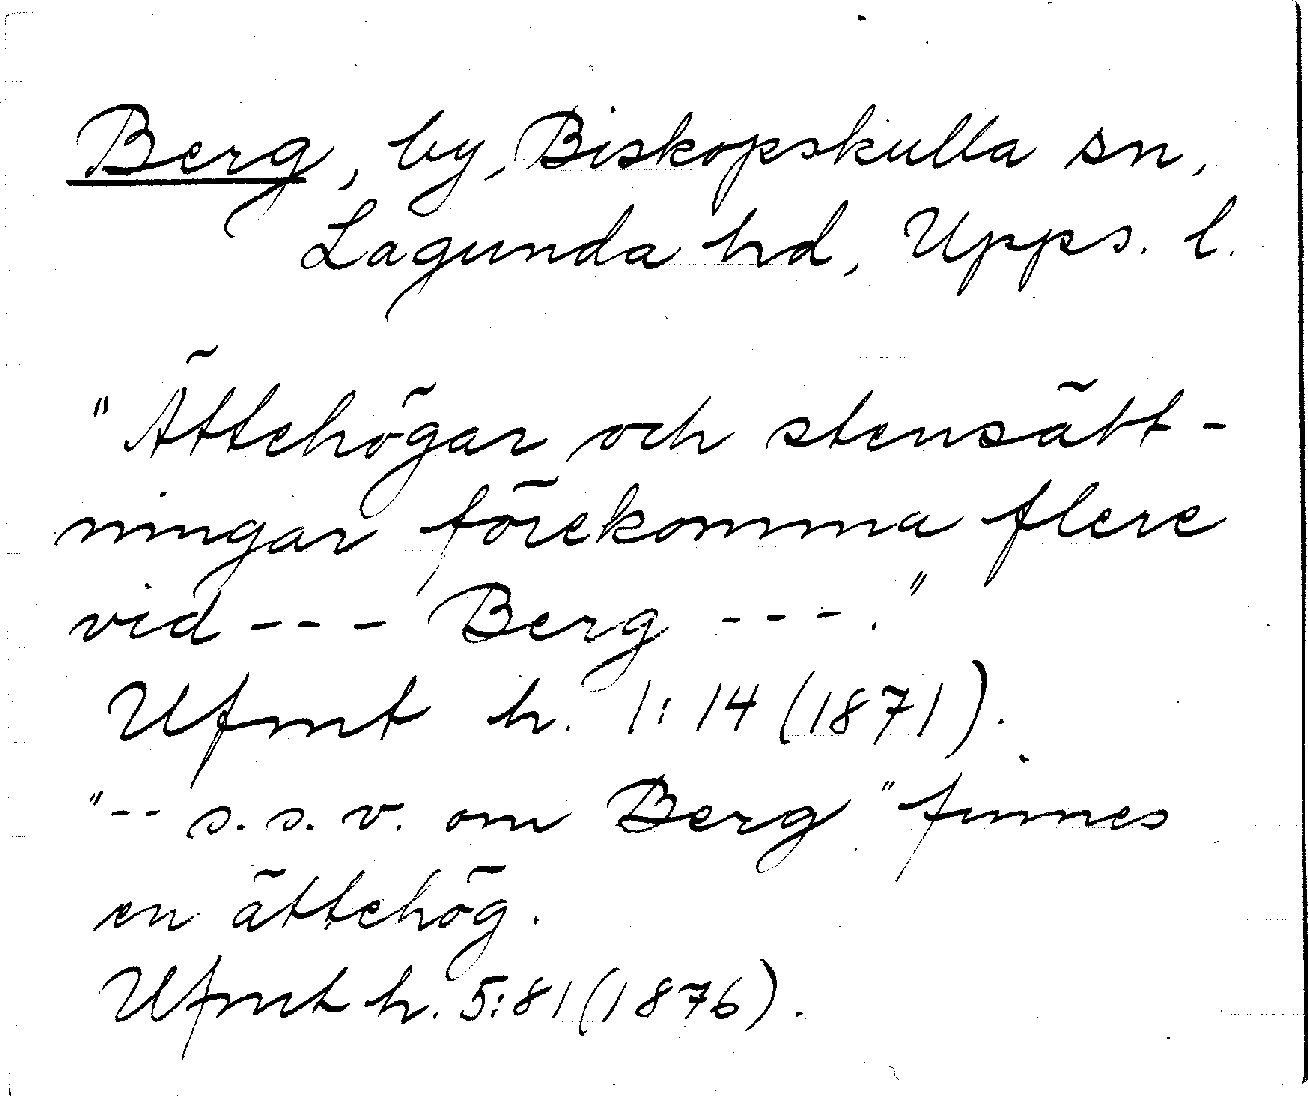 Berg, by, Biskopskulla sn,
Lagunda hd, Upps. l.
"Ättehögar och stensätt-
ningar förekomma flere
vid --- Berg ---."
Ufmt h. 1:14 (1871).
"-- s.s.v. om Berg" finnes
en ättehög.
Ufmt h. 5:81 (1876).